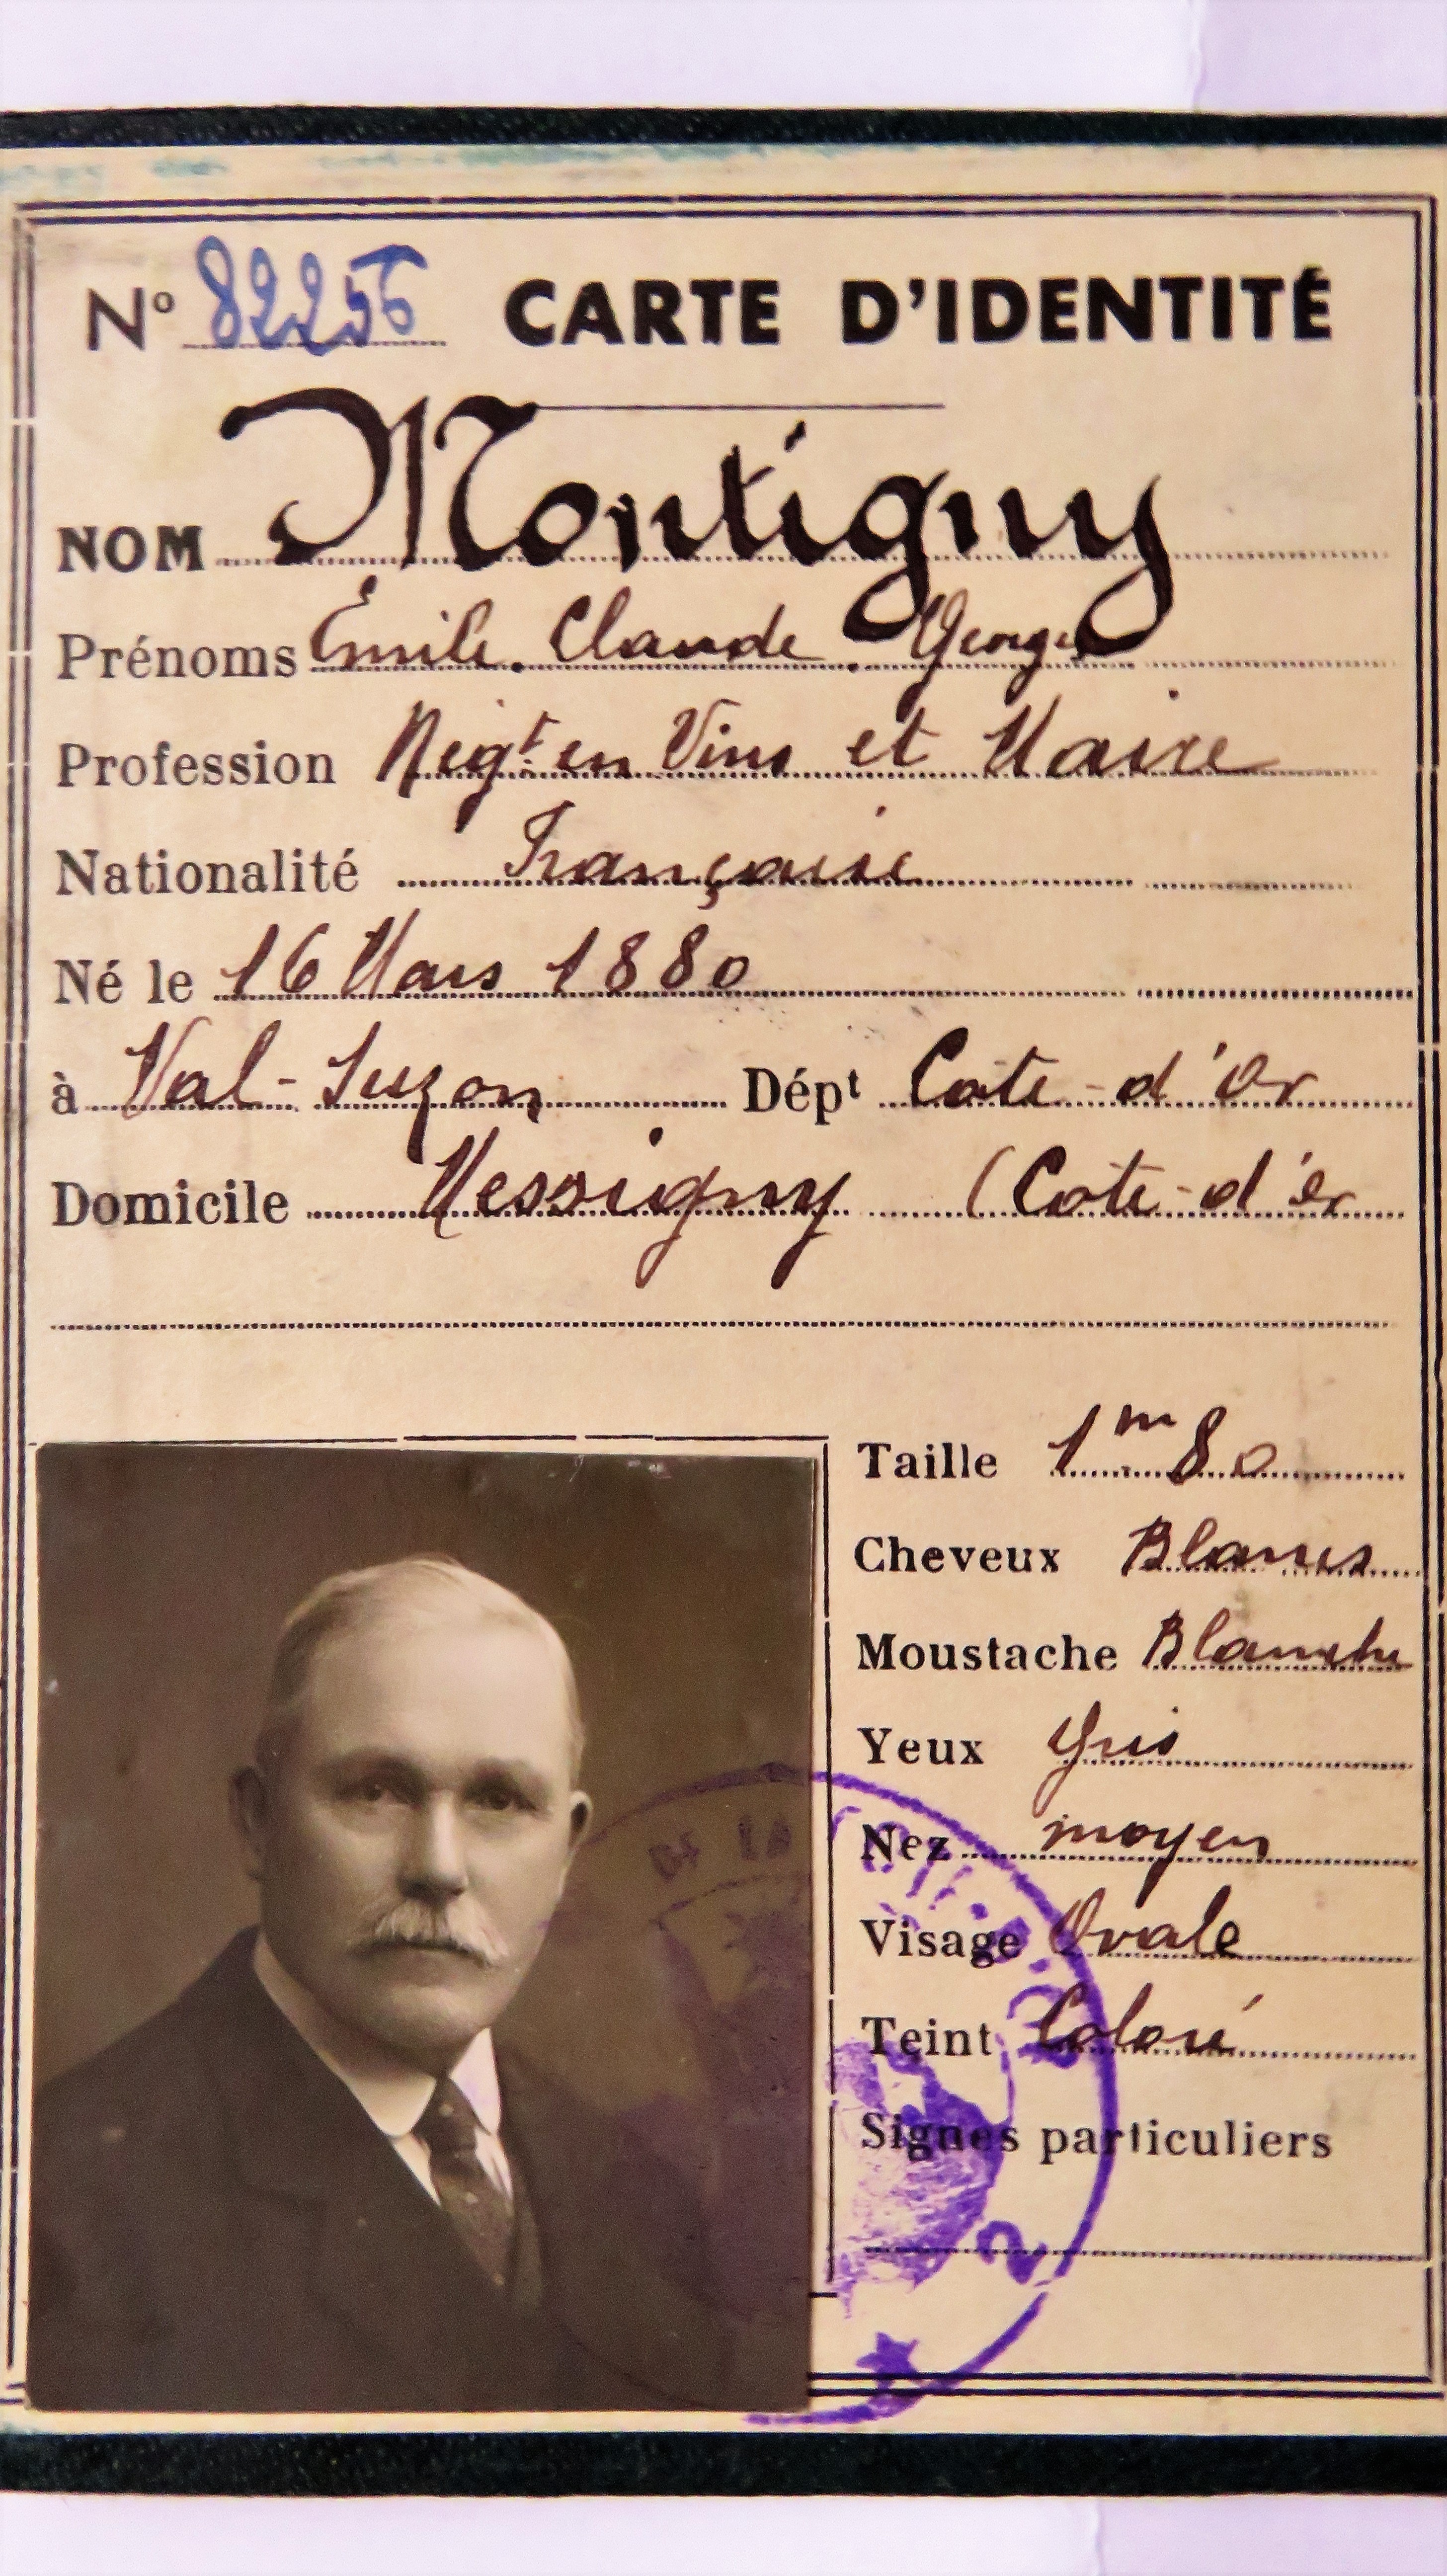 Nº 82256 CARTE D'IDENTITÉ
NOM Montigny
Prénoms Emile. Claude. Georges
Profession Négt en Vins et Maire
Nationalité Française
Né le 16 Mars 1880
à Val-Suzon Dépt Cote-d'Or
Domicile Messigny (Cote-d'or
Taille 1m80
Cheveux Blancs
Moustache Blanche
Yeux Gris
Nez moyen
Visage Ovale
Teint Coloré
Signes particuliers
DE LA
2